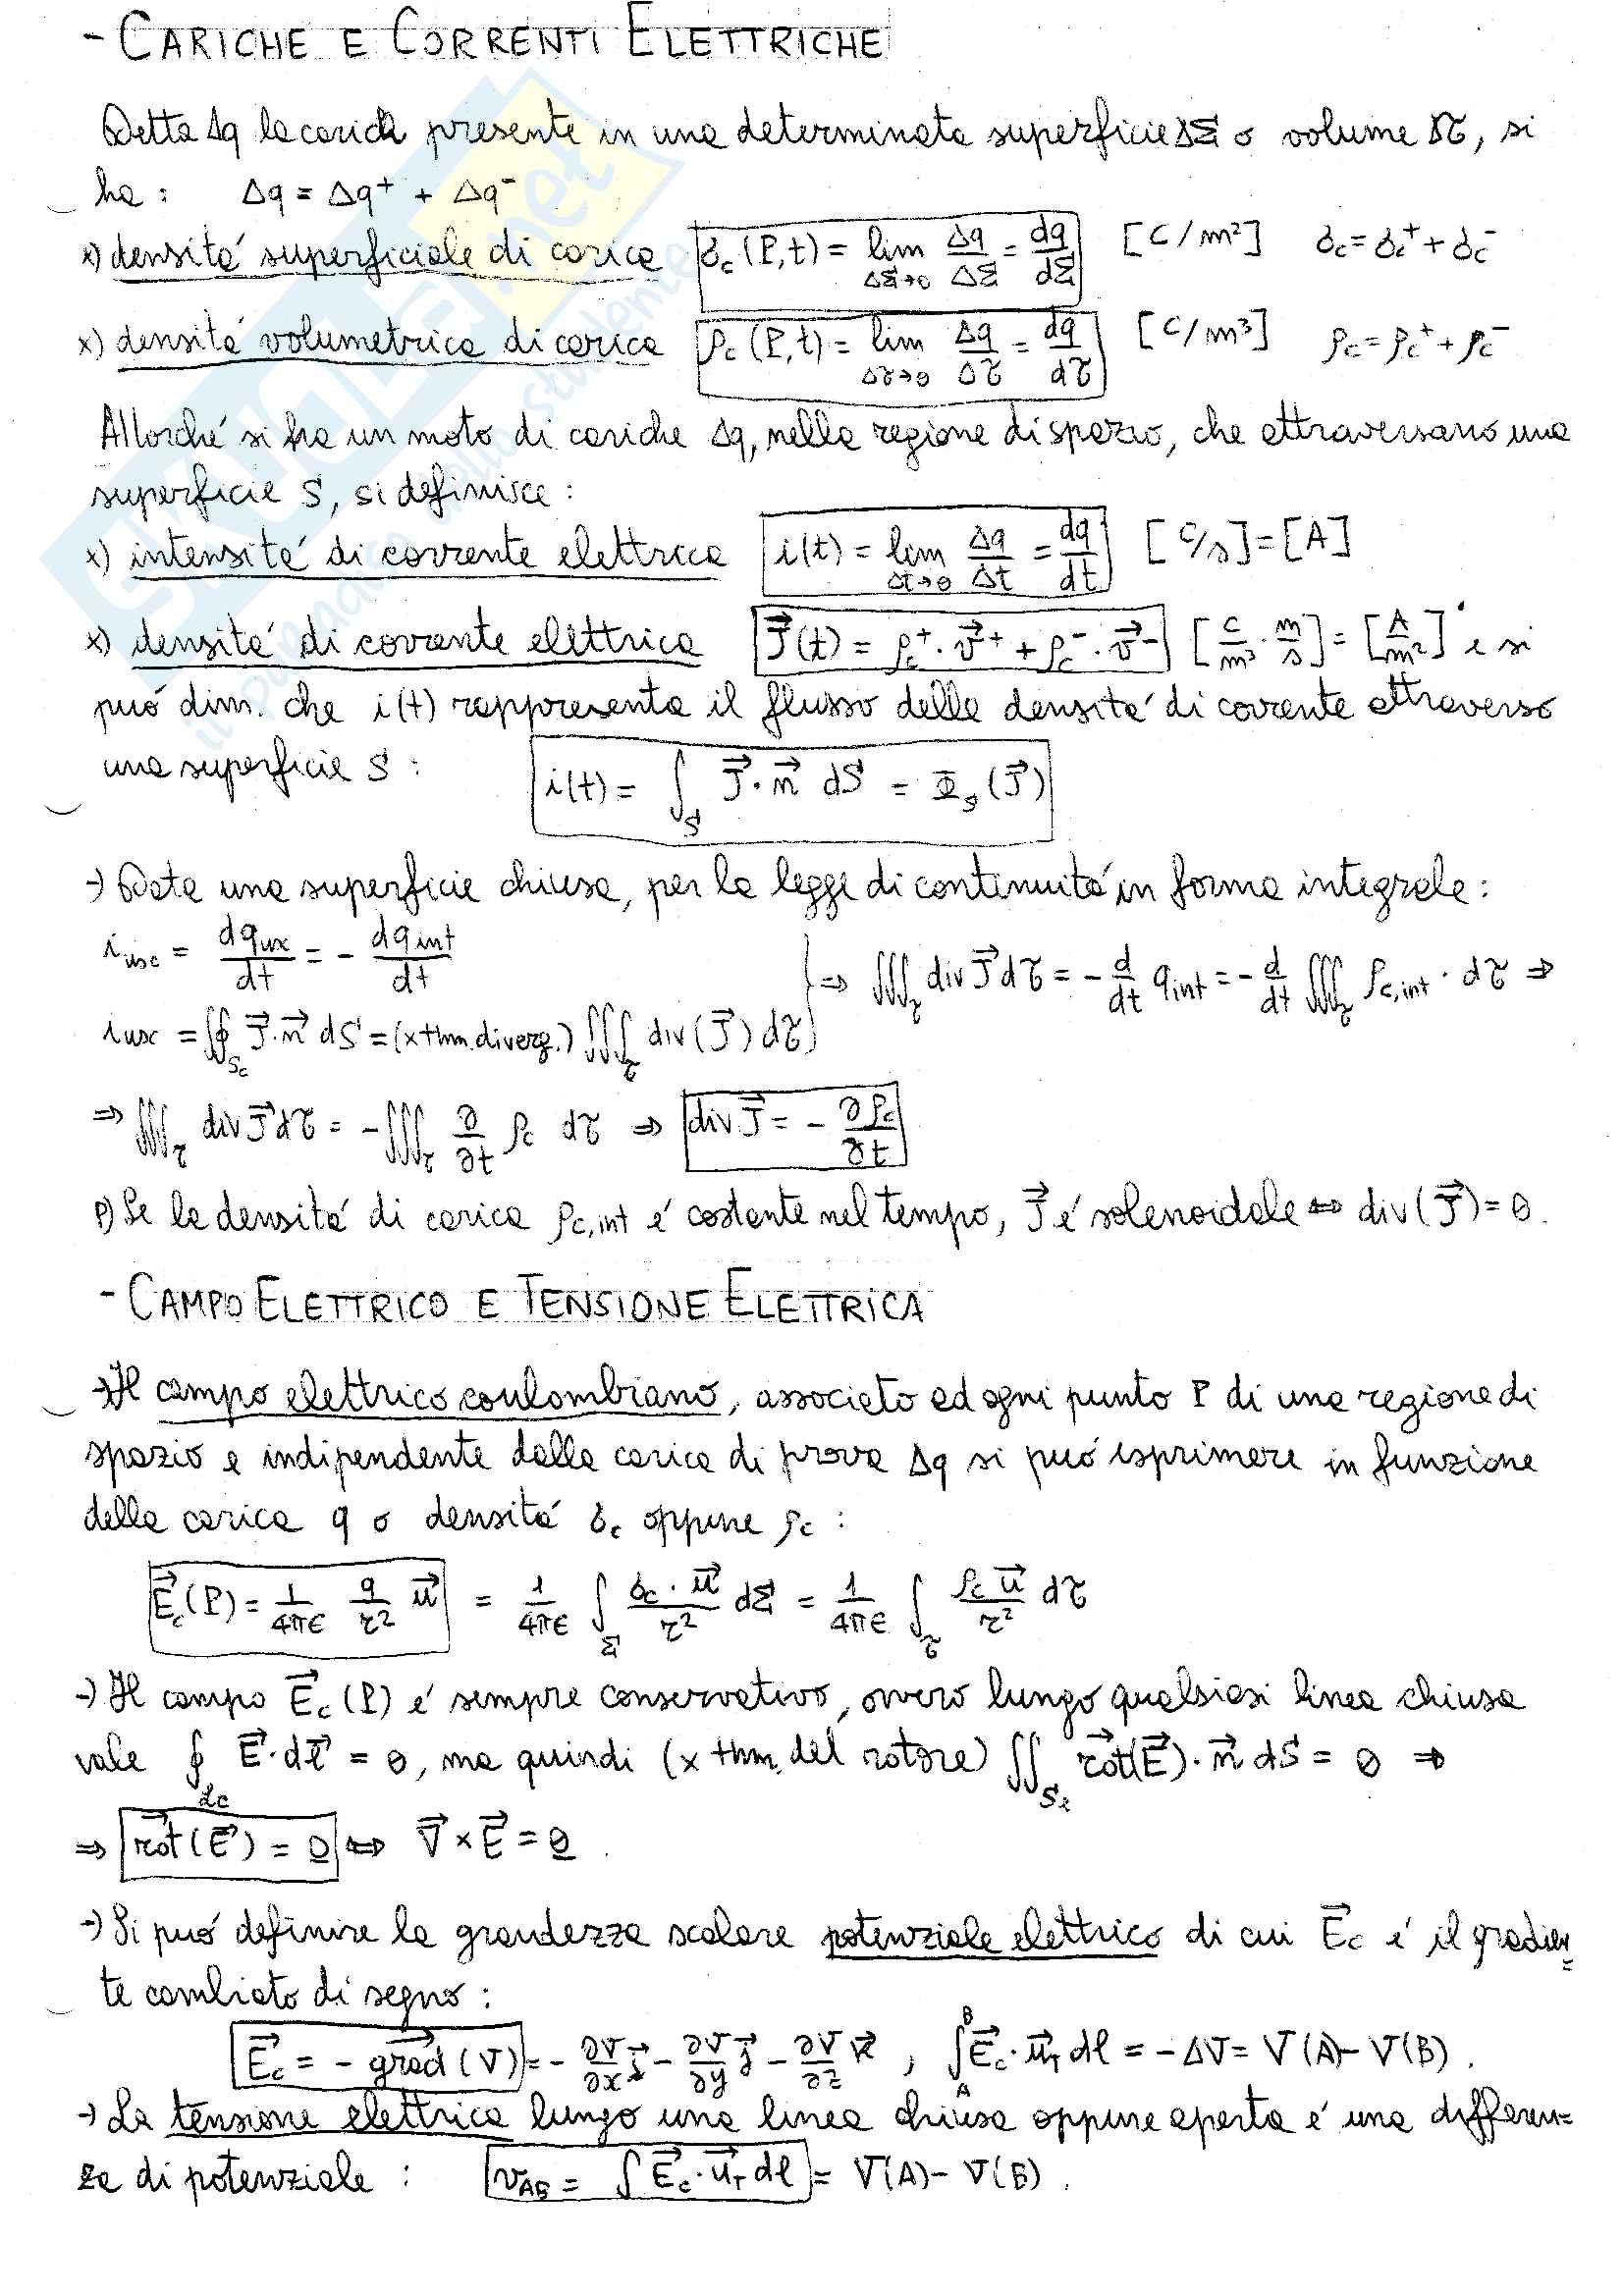 - CARICHE E CORRENTI ELETTRICHE
Detta Δq la carica presente in una determinata superficie ΔΣ o volume Δτ, si
ha : Δq = Δq⁺ + Δq⁻
x) densitá superficiale di carica σc (P,t) = lim ΔΣ→0 Δq/ΔΣ = dq/dΣ [C/m²] σc = σc⁺ + σc⁻
x) densitá volumetrica di carica ρc (P,t) = lim Δτ→0 Δq/Δτ = dq/dτ [C/m³] ρc = ρc⁺ + ρc⁻
Allorché si ha un moto di cariche Δq, nella regione di spazio, che attraversano una
superficie S, si definisce :
x) intensitá di corrente elettrica i(t) = lim Δt→0 Δq/Δt = dq/dt [C/s] = [A]
x) densitá di corrente elettrica J⃗(t) = ρc⁺ · v⃗⁺ + ρc⁻ · v⃗⁻ [C/m³ · m/s] = [A/m²] ; e si
puó dim. che i(t) rappresenta il flusso della densitá di corrente attraverso
una superficie S : i(t) = ∫_S J⃗ · n⃗ dS = Φ_S (J⃗)
→) Data una superficie chiusa, per la legge di continuitá in forma integrale :
i usc = dq ux/dt = - dq int/dt
⇒ ∭_τ div J⃗ dτ = - d/dt q int = - d/dt ∭_τ ρc,int · dτ ⇒
i usc = ∯_Sc J⃗ · n⃗ dS = (x thm. diverg.) ∭_τ div (J⃗) dτ
⇒ ∭_τ div J⃗ dτ = - ∭_τ ∂/∂t ρc dτ ⇒ div J⃗ = - ∂ρc/∂t
P) Se la densitá di carica ρc,int é costante nel tempo, J⃗ é solenoidale ⇔ div (J⃗) = 0.
- CAMPO ELETTRICO E TENSIONE ELETTRICA
→) Il campo elettrico coulombiano, associato ad ogni punto P di una regione di
spazio e indipendente dalla carica di prova Δq si puó esprimere in funzione
della carica q o densitá σc oppure ρc :
E⃗c (P) = 1/4πε q/r² u⃗ = 1/4πε ∫_Σ σc · u⃗/r² dΣ = 1/4πε ∫_τ ρc u⃗/r² dτ
→) Il campo E⃗c (P) é sempre conservativo, ovvero lungo qualsiasi linea chiusa
vale ∮_Lc E⃗ · dl⃗ = 0, ma quindi (x thm. del rotore) ∬_Sl rot⃗(E⃗) · n⃗ dS = 0 ⇒
⇒ rot⃗ (E⃗) = 0 ⇔ ∇⃗ × E⃗ = 0 .
→) Si puó definire la grandezza scalare potenziale elettrico di cui E⃗c é il gradien=
te cambiato di segno :
E⃗c = - grad⃗ (V) = - ∂V/∂x i⃗ - ∂V/∂y j⃗ - ∂V/∂z k⃗ , ∫_A^B E⃗c · u⃗T dl = - ΔV = V(A) - V(B) .
→) La tensione elettrica lungo una linea chiusa oppure aperta é una differen=
za di potenziale : v AB = ∫ E⃗c · u⃗T dl = V(A) - V(B) .